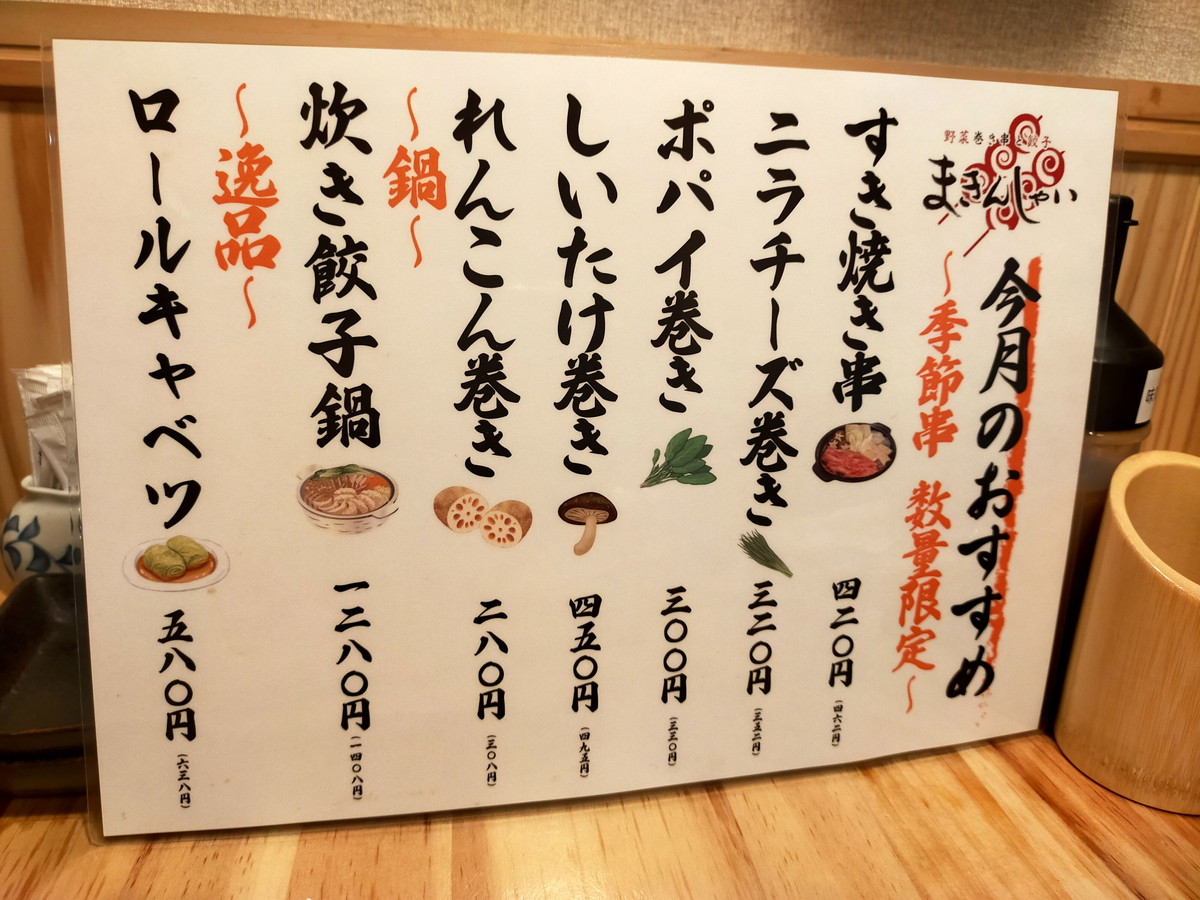 野菜巻き串と餃子
まきんしゃい
今月のおすすめ
〜季節串 数量限定〜
すき焼き串 四二〇円(四六二円)
ニラチーズ巻き 三二〇円(三五二円)
ポパイ巻き 三〇〇円(三三〇円)
しいたけ巻き 四五〇円(四九五円)
れんこん巻き 二八〇円(三〇八円)
〜鍋〜
炊き餃子鍋 一二八〇円(一四〇八円)
〜逸品〜
ロールキャベツ 五八〇円(六三八円)